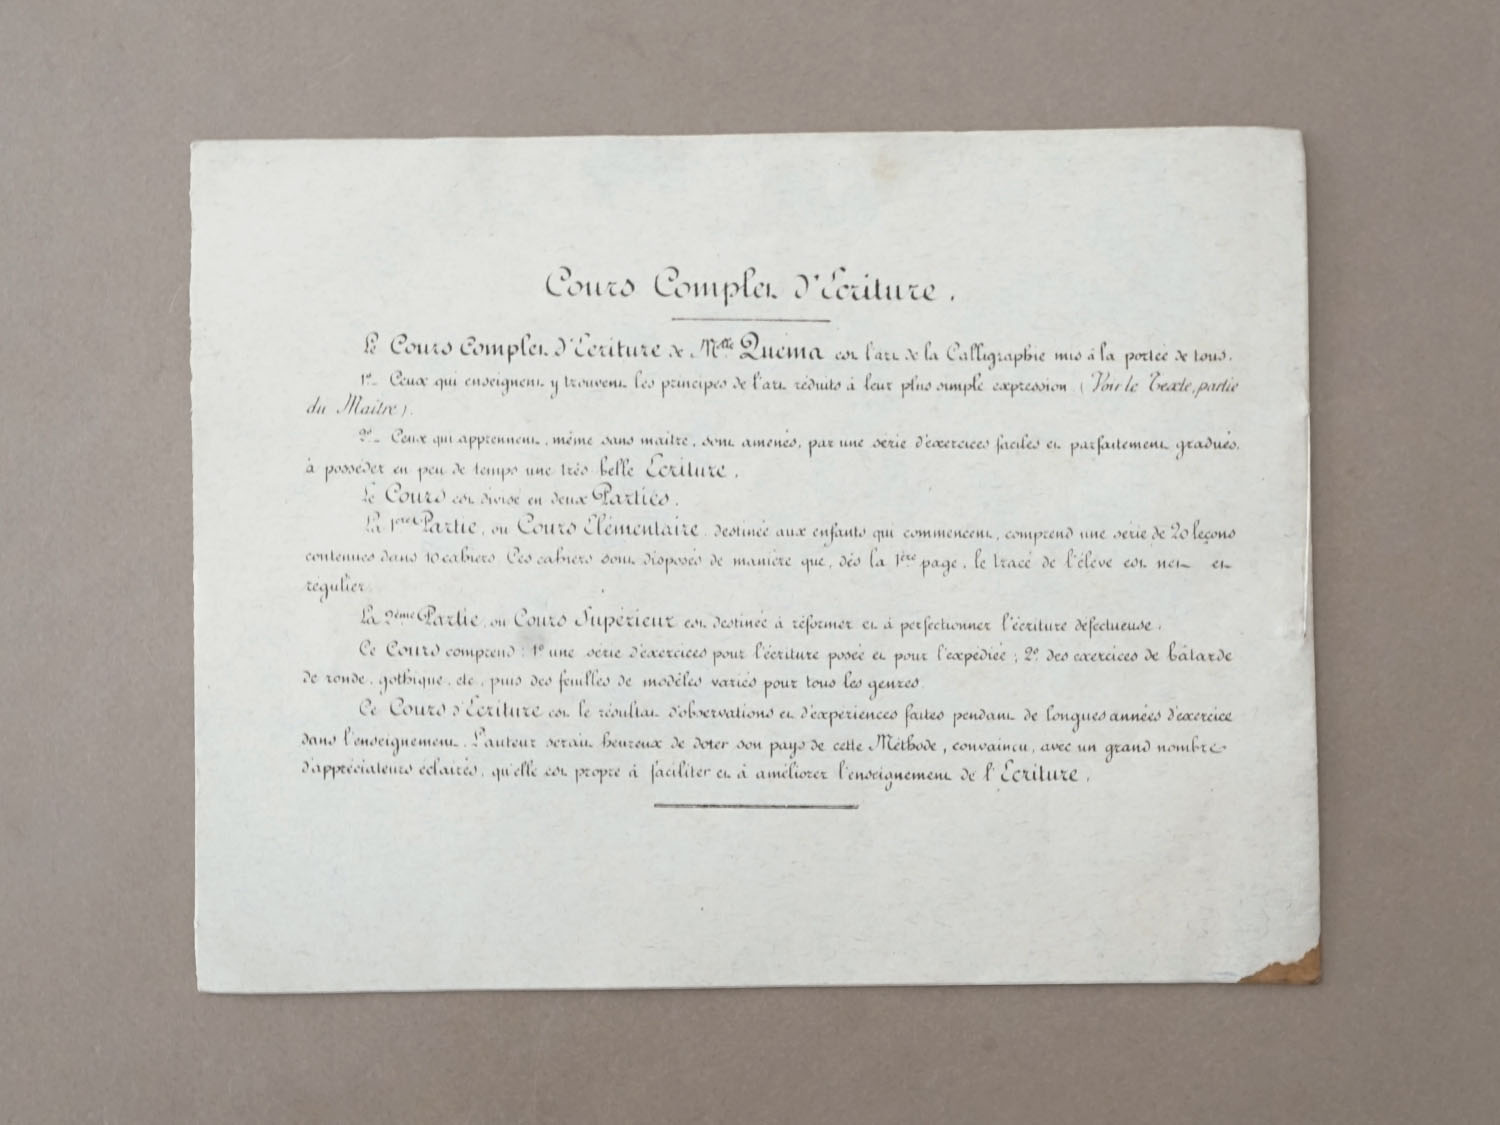 Cours Complet d'Ecriture.
Le Cours Complet d'Ecriture de Melle Quéma est l'art de la Calligraphie mis à la portée de tous.
1o_ Ceux qui enseignent y trouvent les principes de l'art réduits à leur plus simple expression (Voir le Texte, partie
du Maître).
2o_ Ceux qui apprennent, même sans maître, sont amenés, par une série d'exercices faciles et parfaitement gradués,
à posséder en peu de temps une très belle Ecriture.
Le Cours est divisé en deux Parties.
La 1ère Partie, ou Cours Elémentaire, destinée aux enfants qui commencent, comprend une série de 20 leçons
contenues dans 10 cahiers Ces cahiers sont disposés de manière que, dès la 1ère page, le tracé de l'élève est net et
régulier.
La 2ème Partie, ou Cours Supérieur est destinée à réformer et à perfectionner l'écriture défectueuse.
Ce Cours comprend: 1o une série d'exercices pour l'écriture posée et pour l'expédiée; 2o des exercices de bâtarde
de ronde, gothique, etc, puis des feuilles de modèles variés pour tous les genres.
Ce Cours d'Ecriture est le résultat d'observations et d'expériences faites pendant de longues années d'exercice
dans l'enseignement. L'auteur serait heureux de doter son pays de cette Méthode, convaincu, avec un grand nombre
d'appréciateurs éclairés, qu'elle est propre à faciliter et à améliorer l'enseignement de l'Ecriture.